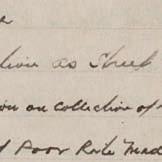 as Street
on collection of
Poor Rate Mad